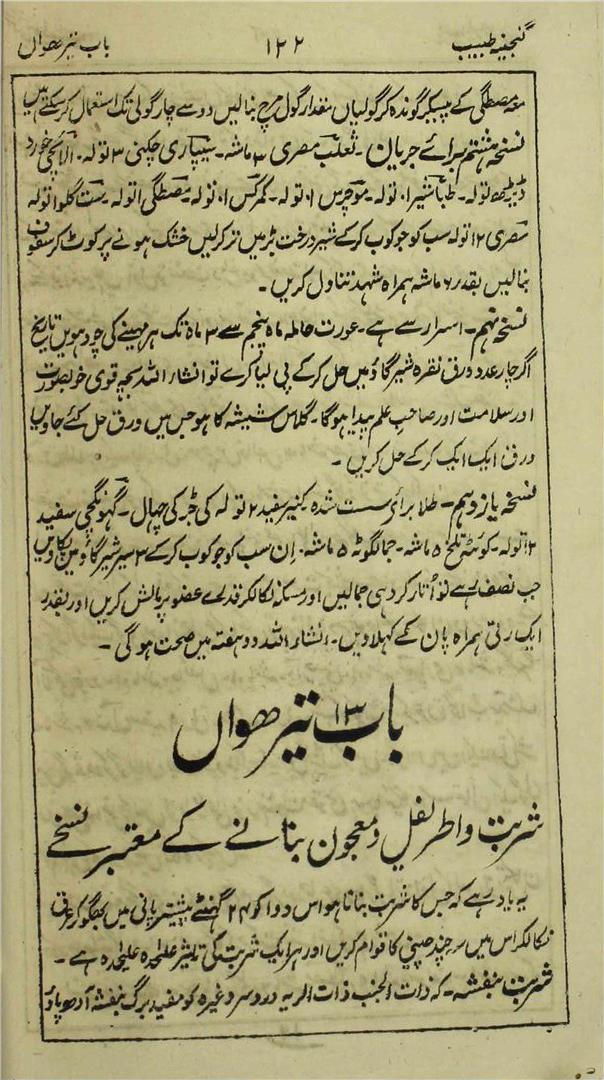 گنجینہ طبیب ۱۲۲ باب تیرھواں
معہ مصطگی کے پیسکر گوندہ کر گولیاں بمقدار گول مرچ بنالیں دو سے چار گولی تک استعمال کر سکتے ہیں
نسخہ ہشتم برائے جریان۔ ثعلب مصری ۳ ماشہ۔ سپیاری چکنی ۳ تولہ۔ الائچی خورد
ڈیڑھ تولہ۔ طباشیر ۱ تولہ۔ موچرس ۱ تولہ۔ کمرکس ۱ تولہ۔ مصطگی ۱ تولہ ست گلو ۱ تولہ
مصری ۱۲ تولہ سب کو جوکوب کر کے شیر درخت بڑ میں تر کر لیں خشک ہونے پر کوٹ کر سفوف
بنالیں بقدر ۶ ماشہ ہمراہ شہد تناول کریں۔
نسخہ نہم۔ اسرار سے ہے۔ عورت حاملہ ماہ پنجم سے ۳ ماہ تک ہر مہینے کی چودہویں تاریخ
اگر چار عدد ورق نقرہ شیر گاؤ میں حل کر کے پی لیا کرے تو انشاء اللہ بچہ قوی خوبصورت
اور سلامت اور صاحب علم پیدا ہوگا۔ گلاس شیشہ کا ہو جس میں ورق حل کئے جاویں
ورق ایک ایک کر کے حل کریں۔
نسخہ یازدہم۔ طلا برائے سست شدہ کنیر سفید ۲ تولہ کی جڑ کی چہال۔ گہونگچی سفید
۱۲ تولہ۔ تلخ ۵ ماشہ۔ جمالگوٹہ ۵ ماشہ۔ ان سب کو جوکوب کر کے ۳ سیر شیر گاؤ میں پکاویں
جب نصف رہے تو اُتار کر دہی جمالیں اور مسکہ نکالکر قدرے عضو پر مالش کریں اور بقدر
ایک رتی ہمراہ پان کے کہلاویں۔ انشاء اللہ دو ہفتہ میں صحت ہوگی۔
باب ۱۳ تیرھواں
شربت و اطریفل و معجون بنانے کے معتبر نسخے
یہ یاد رہے کہ جس کا شربت بنانا ہو اس دوا کو ۲۴ گہنٹے پیشتر پانی میں بھگو کر عرق
نکالکر اس میں سہ چند چینی کا قوام کریں اور ہر ایک شربت کی تاثیر علیحدہ علیحدہ ہے۔
شربت بنفشہ۔ کہ ذات الجنب ذات الریہ درد سر وغیرہ کو مفید برگ بنفشہ آدھ پاؤ